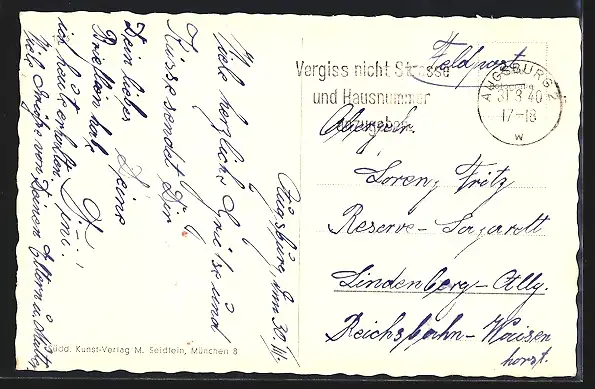 Augsburg, den 30. III.
Viele herzliche Grüße und
Küsse sendet Dir
Deine
Dein liebes
Brieflein hab
ich heute erhalten.
Viele Grüße von Deinen Eltern u. Mutter
Südd. Kunst-Verlag M. Seidlein, München 8
Feldpost
Vergiss nicht Strasse
und Hausnummer
anzugeben
AUGSBURG 2
31.3.40
17-18
w
Obergefr.
Lorenz Fritz
Reserve-Lazarett
Lindenberg-Allg.
Reichsbahn-Waisen
horst.